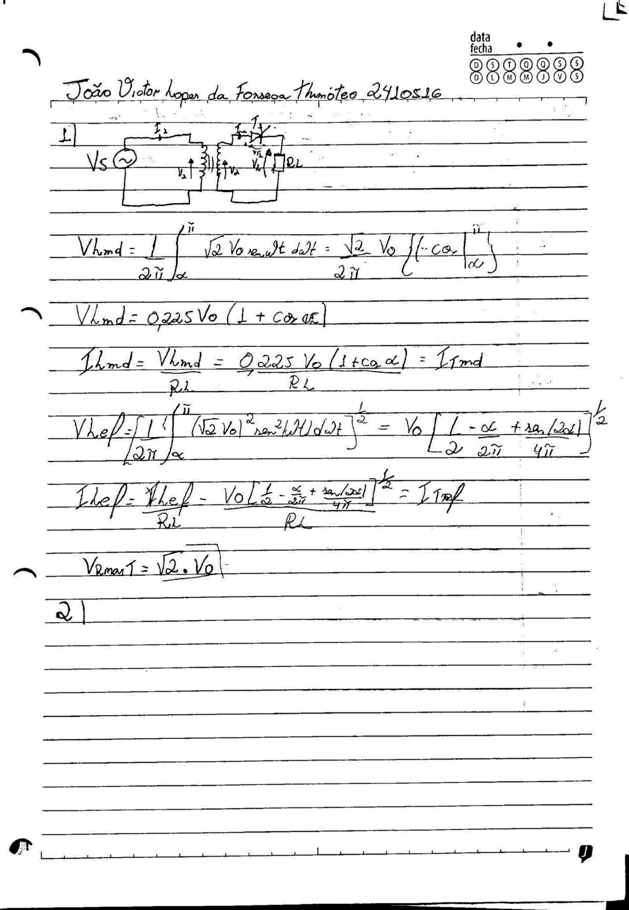 data
fecha
D S T Q Q S S
D L M M J V S
João Victor Lopes da Fonseca Thimóteo 2410516
1)
Vs
V1
V2
T1
VL
RL
VLmd = 1/2π ∫α^π √2 Vo sen ωt dωt = √2/2π Vo {(-cos |α^π}
VLmd = 0,225 Vo (1 + cos α)
ILmd = VLmd/RL = 0,225 Vo (1 + cos α)/RL = ITmd
VLef = [1/2π ∫α^π (√2 Vo)² sen²(ωt) dωt]^1/2 = Vo [1/2 - α/2π + sen(2α)/4π]^1/2
ILef = VLef/RL - Vo [1/2 - α/2π + sen(2α)/4π]^1/2/RL = ITef
VRmaxT = √2 . Vo
2)